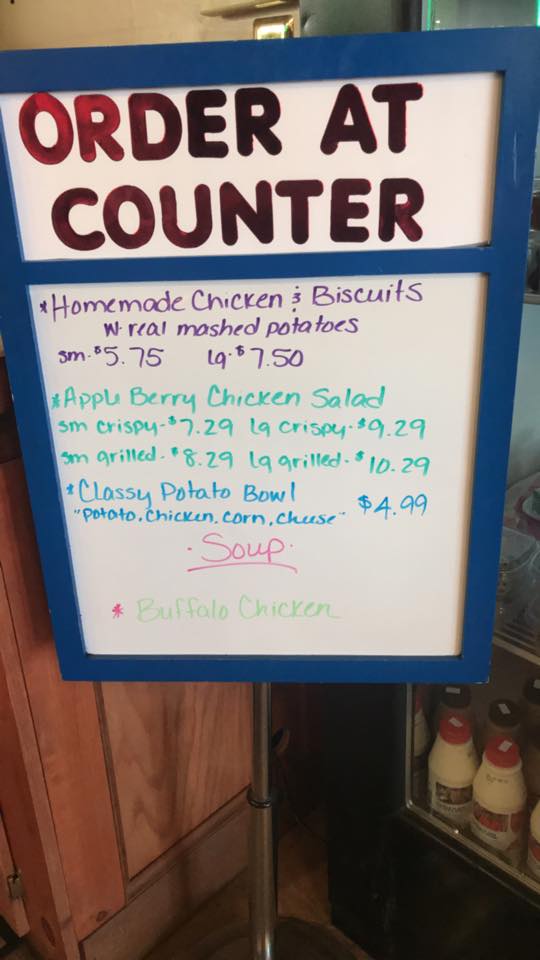 ORDER AT
COUNTER
*Homemade Chicken & Biscuits
w. real mashed potatoes
sm. $5.75 lg. $7.50
*Apple Berry Chicken Salad
sm crispy-$7.29 lg crispy-$9.29
sm grilled-$8.29 lg grilled-$10.29
*Classy Potato Bowl $4.99
"potato, chicken, corn, cheese"
·Soup·
* Buffalo Chicken